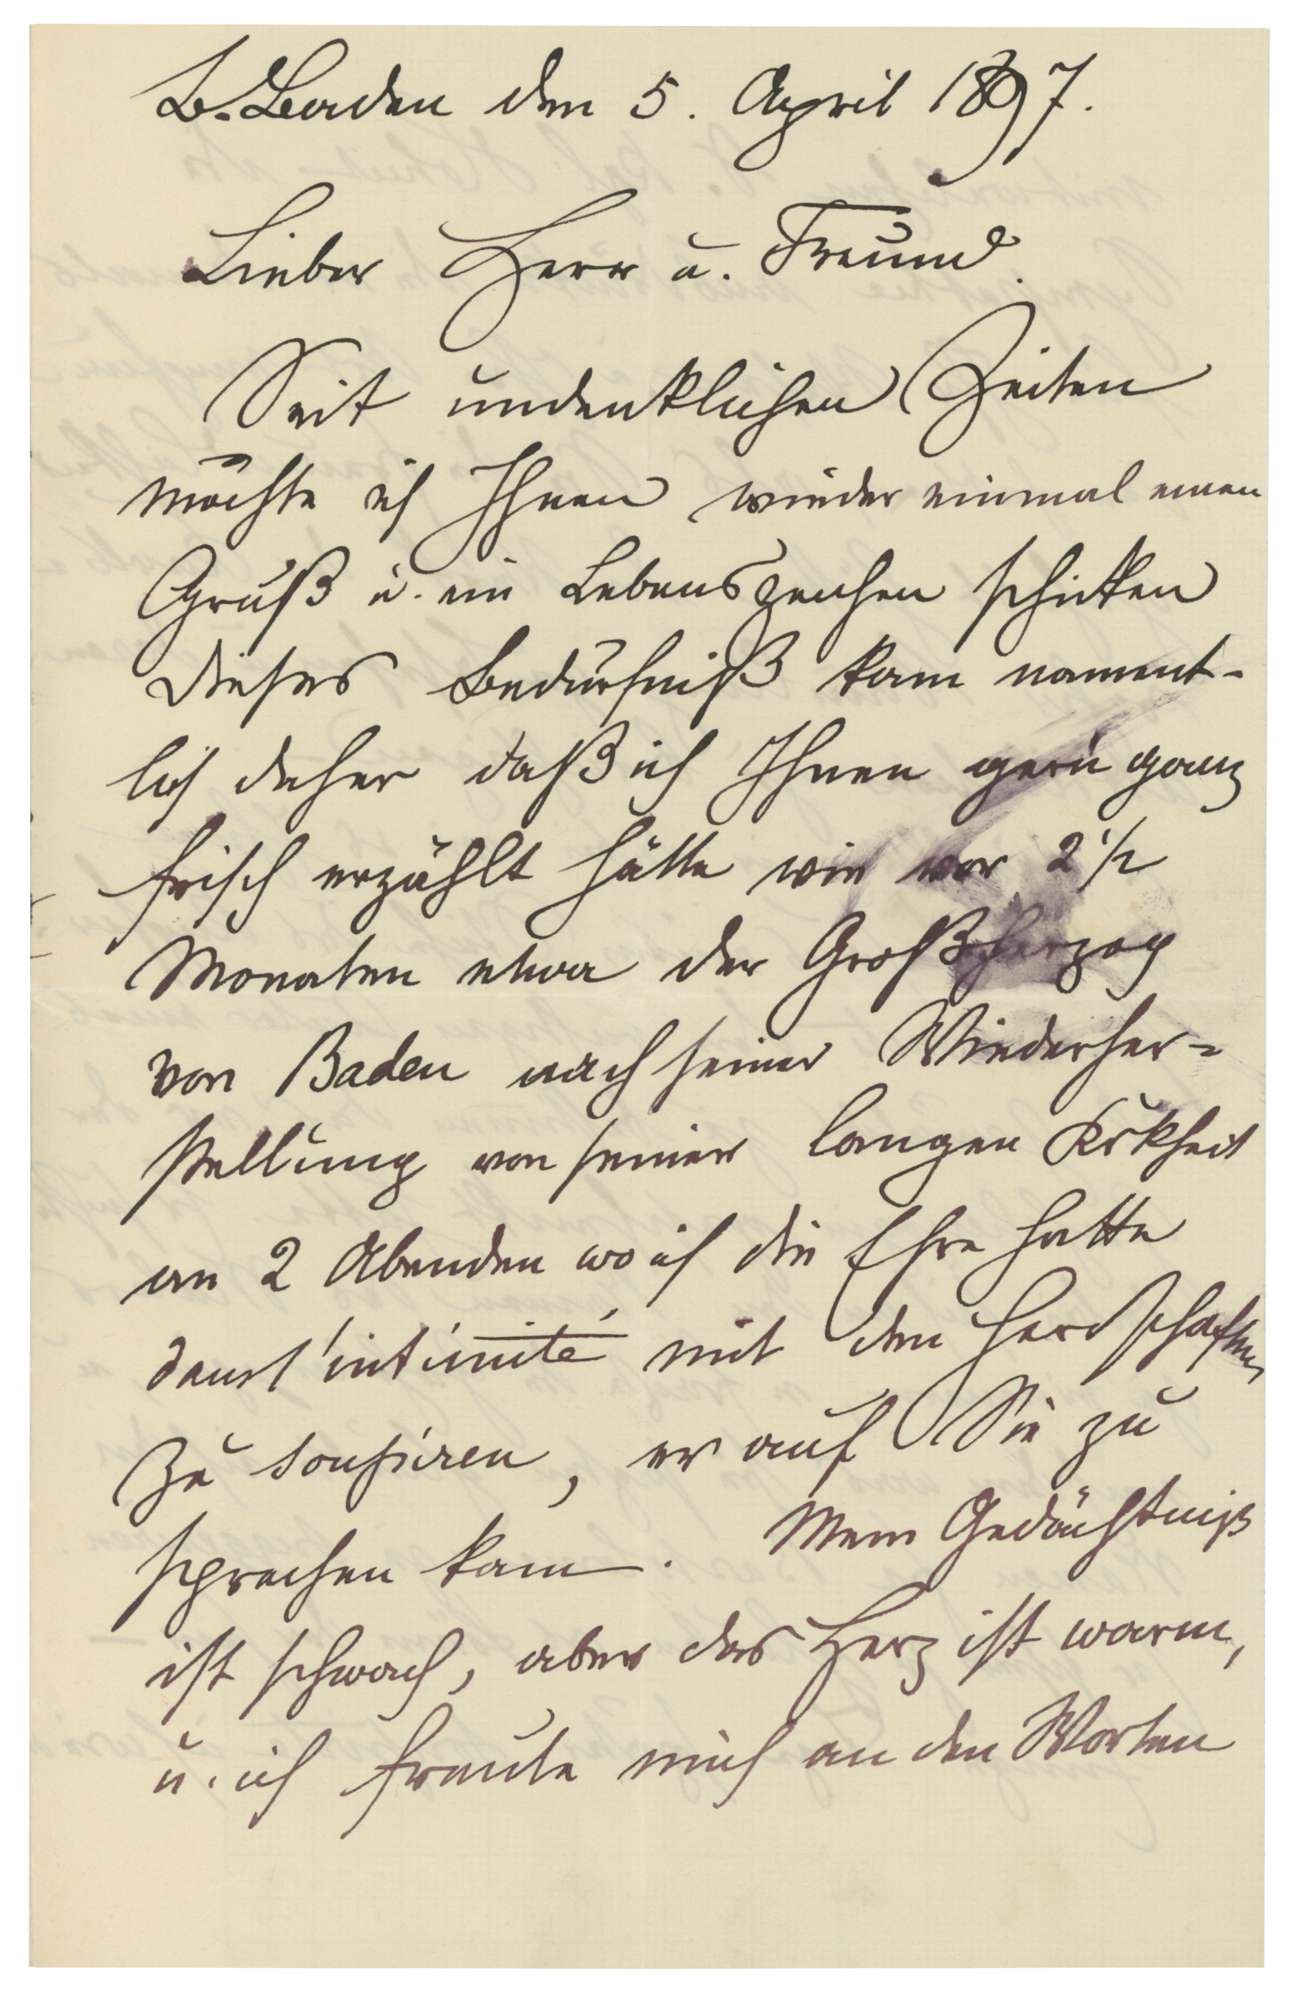 B. Baden den 5. April 1897.
Lieber Herr u. Freund.
Seit undenklichen Zeiten
möchte ich Ihnen wieder einmal einen
Gruß u. ein Lebenszeichen schicken
dieses Bedürfniß kam nament-
lich daher daß ich Ihnen gern ganz
frisch erzählt hätte wie vor 2 1/2
Monaten etwa der Großherzog
von Baden nach seiner Wiederher-
stellung von seiner langen Krkheit
an 2 Abenden wo ich die Ehre hatte
dans l'intimité mit den Herrschaften
zu soupiren, er auf Sie zu
sprechen kam. Mein Gedächtniß
ist schwach, aber das Herz ist warm,
u. ich freute mich an den Worten